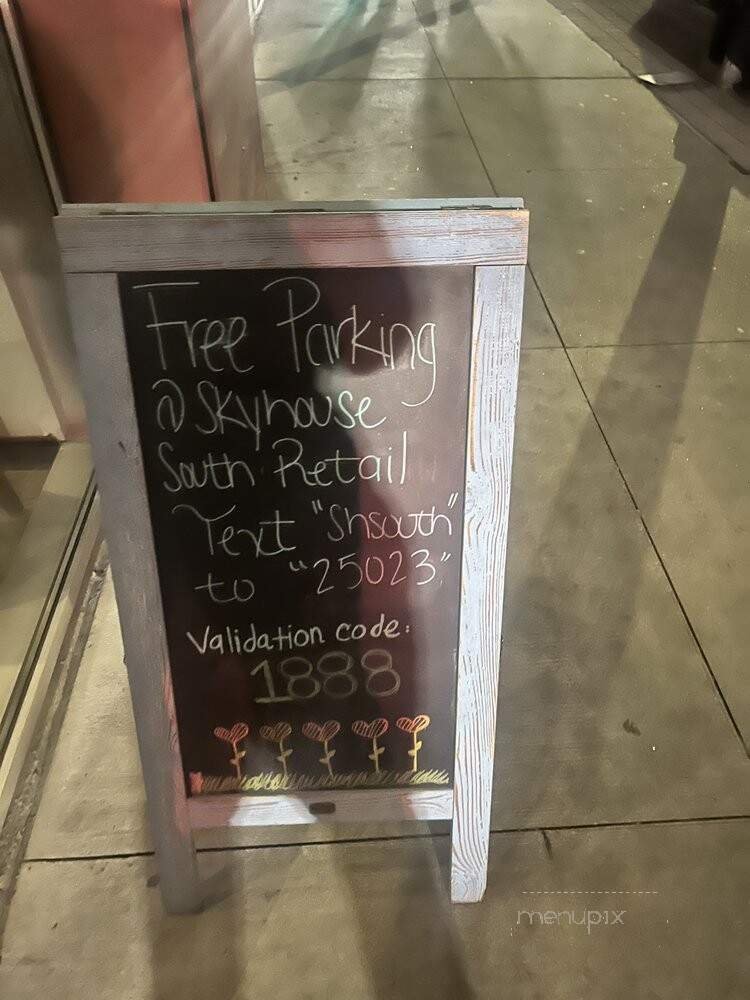 Free Parking
@ Skyhouse
South Retail
Text "Shsouth"
to "25023"
Validation code:
1888
menupix